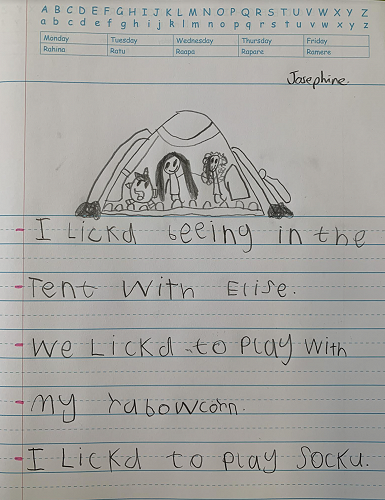 A B C D E F G H I J K L M N O P Q R S T U V W X Y Z
a b c d e f g h i j k l m n o p q r s t u v w x y z
Monday Tuesday Wednesday Thursday Friday
Rahina Ratu Raapa Rapare Ramere
Josephine
I Lickd beeing in the
Tent With Elise.
We Lickd to Play With
My rabowcorn.
I Lickd to play Socku.